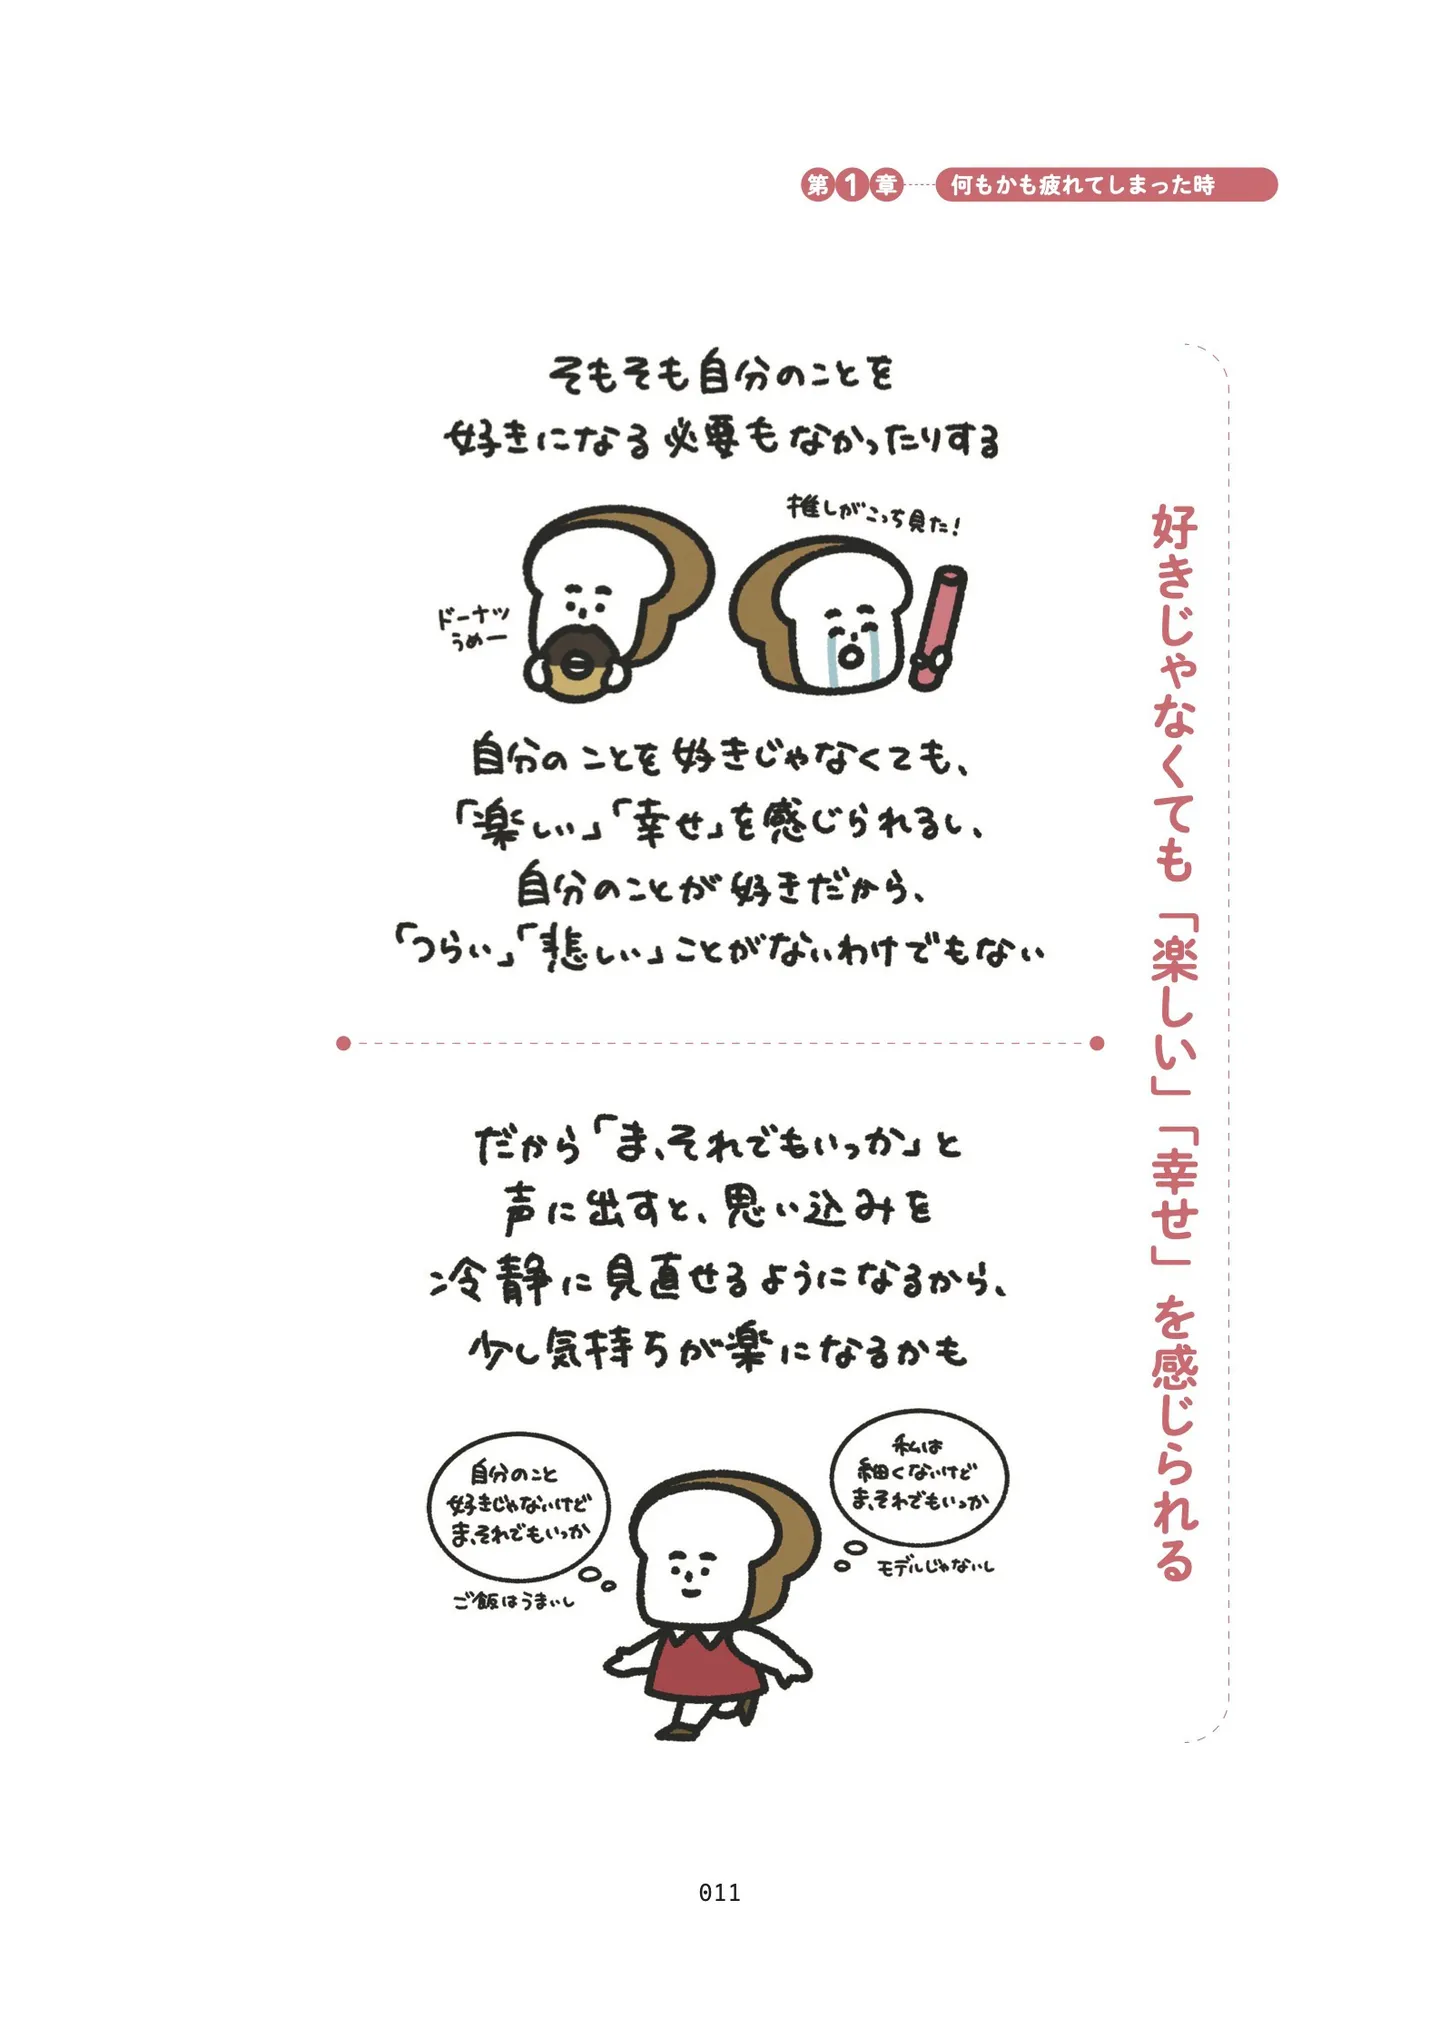 第1章 何もかも疲れてしまった時
好きじゃなくても「楽しい」「幸せ」を感じられる
そもそも自分のことを
好きになる必要もなかったりする
推しがこっち見た!
ドーナツ
うめー
自分のことを好きじゃなくても、
「楽しい」「幸せ」を感じられるし、
自分のことが好きだから、
「つらい」「悲しい」ことがないわけでもない
だから「ま、それでもいっか」と
声に出すと、思い込みを
冷静に見直せるようになるから、
少し気持ちが楽になるかも
私は
細くないけど
ま、それでもいっか
モデルじゃないし
自分のこと
好きじゃないけど
ま、それでもいっか
ご飯はうまいし
011